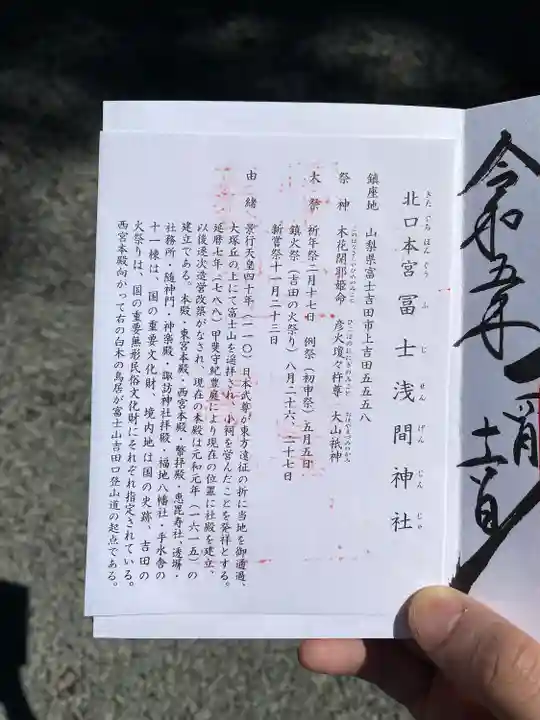 令和五年
きたぐちほんぐうふじせんげんじんじゃ
北口本宮冨士浅間神社
鎮座地 山梨県富士吉田市上吉田五五五八
このはなさくやひめのみこと ひこほのににぎのみこと おおやまづみのかみ
祭神 木花開耶姫命 彦火瓊々杵尊 大山祇神
大祭 祈年祭二月十七日 例祭（初申祭）五月五日
鎮火祭（吉田の火祭り）八月二十六、二十七日
新嘗祭十一月二十三日
由緒 景行天皇四十年（一一〇）日本武尊が東方遠征の折に当地を御通過、
大塚丘の上にて富士山を遥拝され、小祠を営んだことを発祥とする。
延暦七年（七八八）甲斐守紀豊庭により現在の位置に社殿を建立、
以後逐次造営改築がなされ、現在の本殿は元和元年（一六一五）の
建立である。本殿・東宮本殿・西宮本殿・幣拝殿・恵毘寿社・透塀・
社務所・随神門・神楽殿・諏訪神社拝殿・福地八幡社・手水舎の
十一棟は、国の重要文化財、境内地は国の史跡、吉田の
火祭りは、国の重要無形民俗文化財にそれぞれ指定されている。
西宮本殿向かって右の白木の鳥居が富士山吉田口登山道の起点である。